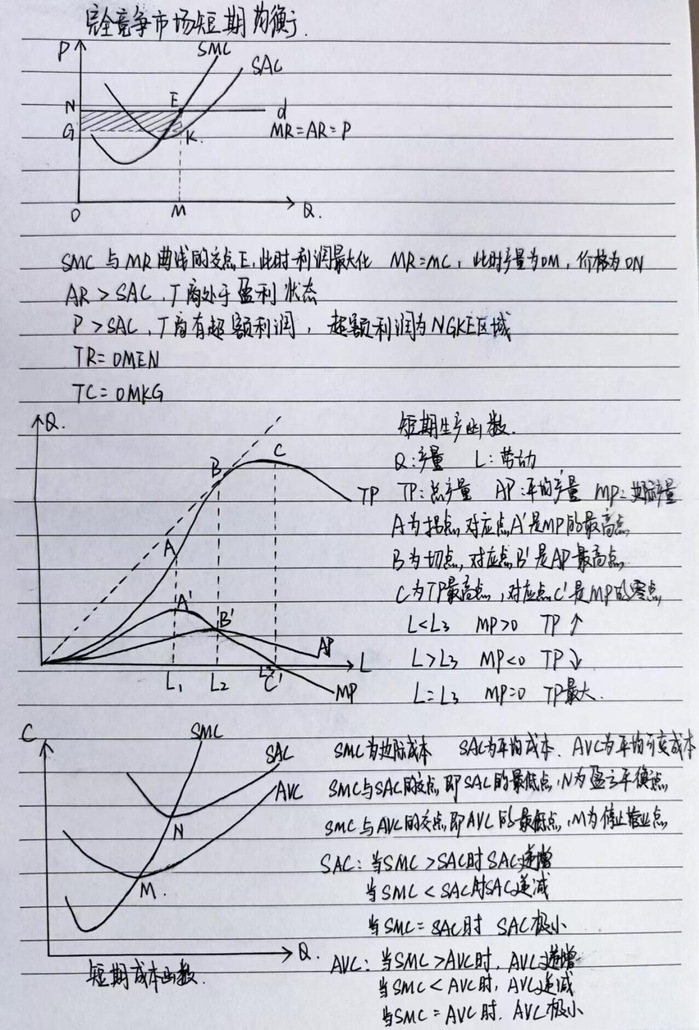 完全竞争市场短期均衡.
P
SMC
SAC
N
E
d
G
K.
MR=AR=P
O
M
Q.
SMC与MR曲线的交点E,此时利润最大化 MR=MC,此时产量为OM,价格为ON
AR>SAC,厂商处于盈利状态
P>SAC,厂商有超额利润,超额利润为NGKE区域
TR=OMEN
TC=OMKG
Q.
短期生产函数.
Q:产量 L:劳动
B
C
TP
TP:总产量 AP:平均产量 MP:边际产量
A为拐点,对应点A'是MP的最高点
A
B为切点,对应点B'是AP最高点
C为TP最高点,对应点C'是MP的零点
A'
B'
L<L3 MP>0 TP↑
AP
L>L3 MP<0 TP↓
L1 L2 L3 C' L
MP
L=L3 MP=0 TP最大.
C
SMC
SAC
AVC
SMC为边际成本 SAC为平均成本、AVC为平均可变成本
SMC与SAC的交点,即SAC的最低点,N为盈亏平衡点
N
SMC与AVC的交点即AVC的最低点,M为停止营业点
M.
SAC:当SMC>SAC时SAC递增
当SMC<SAC时SAC递减
当SMC=SAC时 SAC极小
Q.
短期成本函数.
AVC:当SMC>AVC时,AVC递增
当SMC<AVC时,AVC递减
当SMC=AVC时.AVC极小